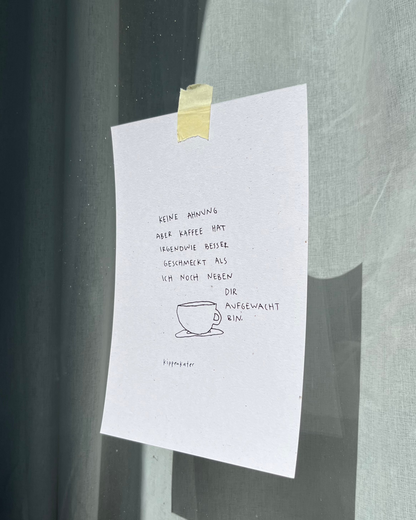 KEINE AHNUNG
ABER KAFFEE HAT
IRGENDWIE BESSER
GESCHMECKT ALS
ICH NOCH NEBEN
DIR
AUFGEWACHT
BIN.
kippenkater